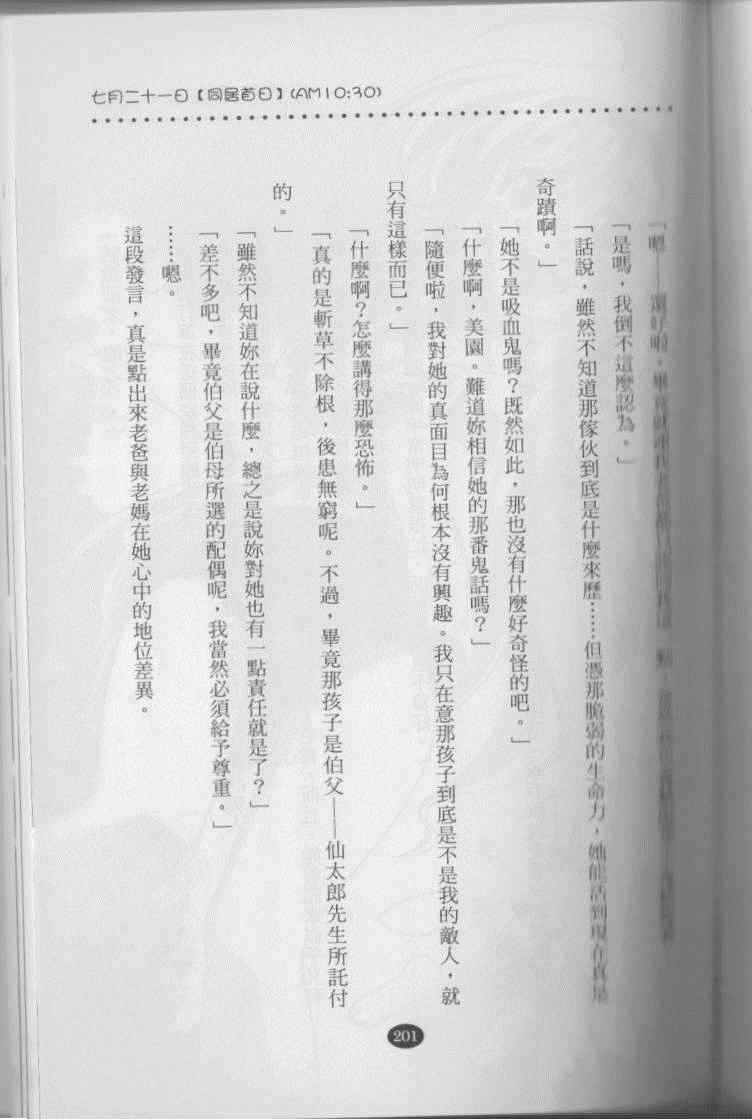 七月二十一日【同居首日】(AM10:30)
「嗯——還好啦。畢竟
「是嗎，我倒不這麼認為。」
「話說，雖然不知道那傢伙到底是什麼來歷……但憑那脆弱的生命力，她能活到現在真是
奇蹟啊。」
「她不是吸血鬼嗎？既然如此，那也沒有什麼好奇怪的吧。」
「什麼啊，美園。難道妳相信她的那番鬼話嗎？」
「隨便啦，我對她的真面目為何根本沒有興趣。我只在意那孩子到底是不是我的敵人，就
只有這樣而已。」
「什麼啊？怎麼講得那麼恐怖。」
「真的是斬草不除根，後患無窮呢。不過，畢竟那孩子是伯父——仙太郎先生所託付
的。」
「雖然不知道妳在說什麼，總之是說妳對她也有一點責任就是了？」
「差不多吧，畢竟伯父是伯母所選的配偶呢，我當然必須給予尊重。」
……嗯。
這段發言，真是點出來老爸與老媽在她心中的地位差異。
201